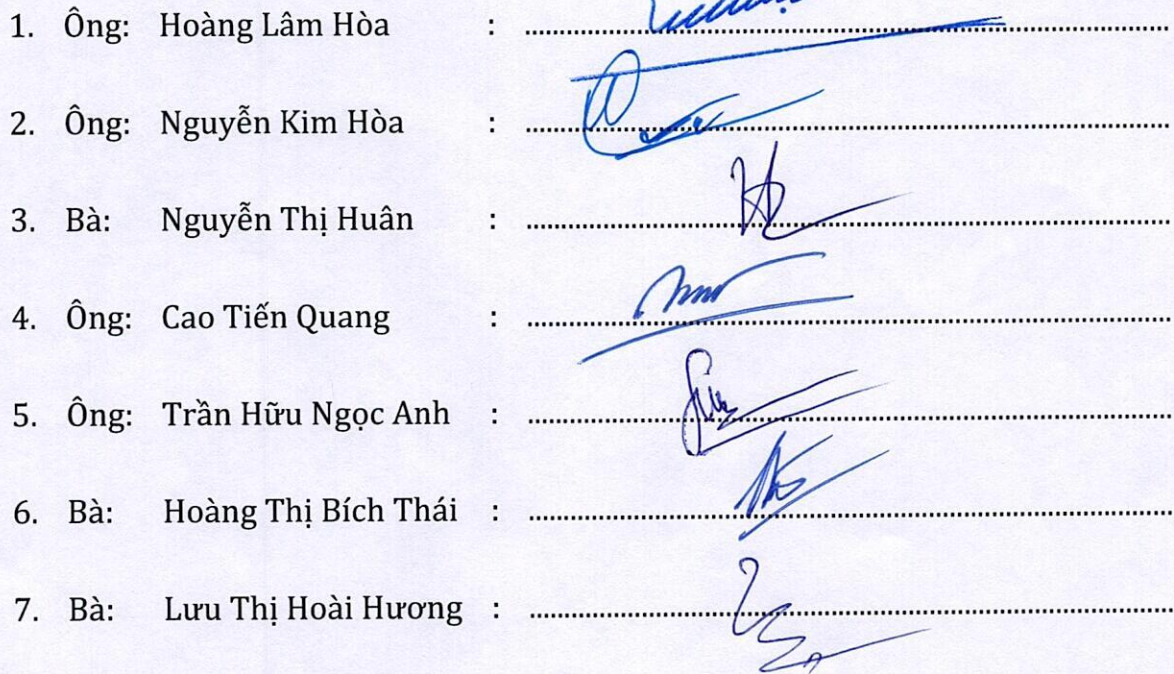 1. Ông: Hoàng Lâm Hòa : ........................................
2. Ông: Nguyễn Kim Hòa : ........................................
3. Bà: Nguyễn Thị Huân : ........................................
4. Ông: Cao Tiến Quang : ........................................
5. Ông: Trần Hữu Ngọc Anh : ........................................
6. Bà: Hoàng Thị Bích Thái : ........................................
7. Bà: Lưu Thị Hoài Hương : ........................................